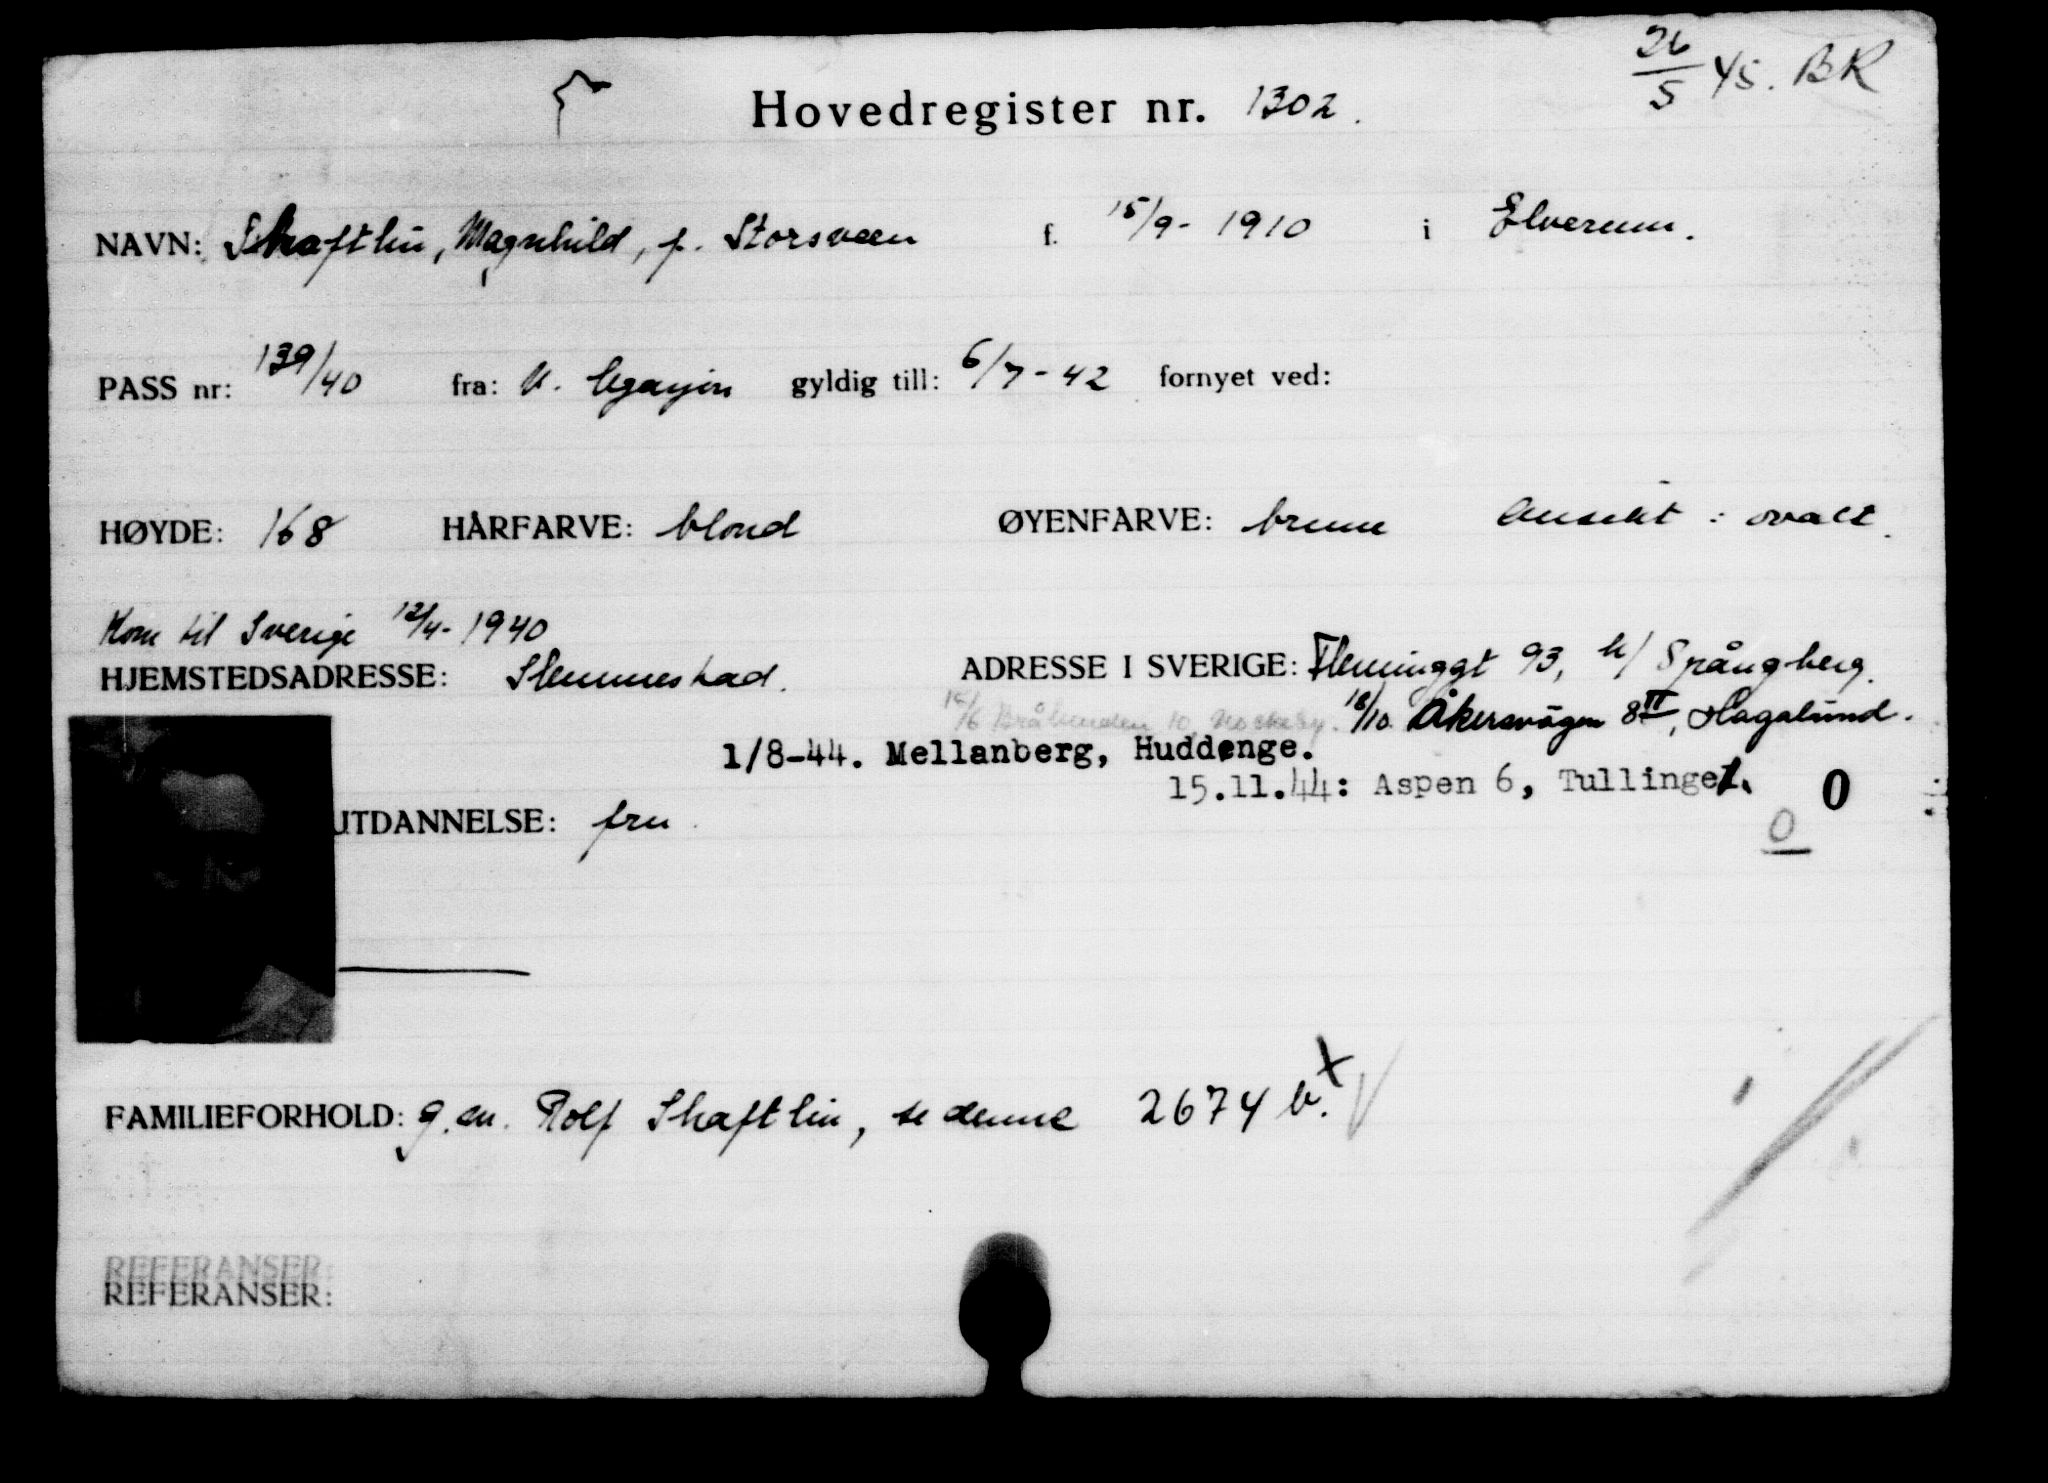 26/5 45. BR
Hovedregister nr. 1302.
NAVN: Shaftlin, Magnhild, f. Storsveen f. 15/9- 1910 i Elverum.
PASS nr: 139/40 fra: N. legasjon gyldig till: 6/7-42 fornyet ved:
HØYDE: 168 HÅRFARVE: blond ØYENFARVE: brune Ansikt: ovalt.
Kom til Sverige 12/4-1940
HJEMSTEDSADRESSE: Slemmestad. ADRESSE I SVERIGE: Fleminggt 93, h/ Spångberg.
10, Nockeby. 18/10. Åkersvägen 8 II, Hagalund.
1/8-44. Mellanberg, Huddenge.
15.11.44: Aspen 6, Tullinge 1. 0
UTDANNELSE: fru 0
FAMILIEFORHOLD: g.m. Rolf Shaftlin, se denne 2674 b. x
REFERANSER:
REFERANSER: